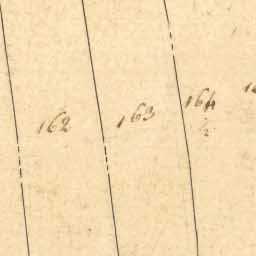 162
163
164
1/2